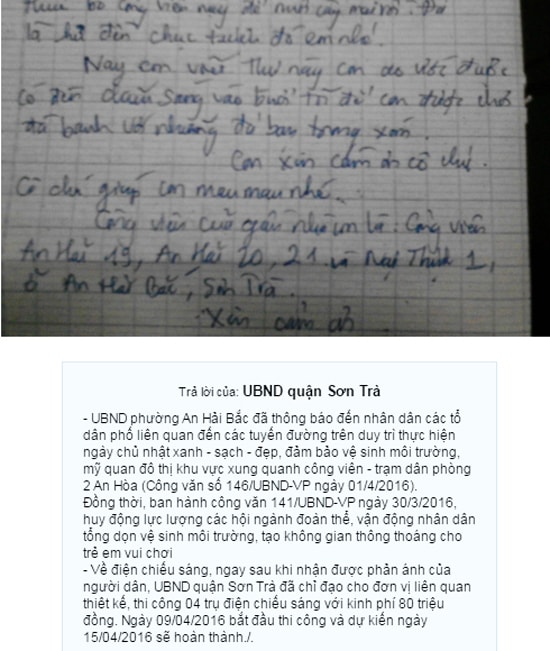 là hè đến
Nay con viết Thư này con ao ước được
có đèn chiếu sáng vào buổi tối để con được chơi
đá banh với những đứa bạn trong xóm.
Con xin cảm ơn cô chú.
Cô chú giúp con mau mau nhé.
Công viên gần nhà Công viên
An Hải 19, An Hải 20, 21 và Nại Thịnh 1,
ở An Hải Bắc, Sơn Trà.
Xin cảm ơn
Trả lời của: UBND quận Sơn Trà
- UBND phường An Hải Bắc đã thông báo đến nhân dân các tổ
dân phố liên quan đến các tuyến đường trên duy trì thực hiện
ngày chủ nhật xanh - sạch - đẹp, đảm bảo vệ sinh môi trường,
mỹ quan đô thị khu vực xung quanh công viên - trạm dân phòng
2 An Hòa (Công văn số 146/UBND-VP ngày 01/4/2016).
Đồng thời, ban hành công văn 141/UBND-VP ngày 30/3/2016,
huy động lực lượng các hội ngành đoàn thể, vận động nhân dân
tổng dọn vệ sinh môi trường, tạo không gian thông thoáng cho
trẻ em vui chơi
- Về điện chiếu sáng, ngay sau khi nhận được phản ánh của
người dân, UBND quận Sơn Trà đã chỉ đạo cho đơn vị liên quan
thiết kế, thi công 04 trụ điện chiếu sáng với kinh phí 80 triệu
đồng. Ngày 09/04/2016 bắt đầu thi công và dự kiến ngày
15/04/2016 sẽ hoàn thành./.